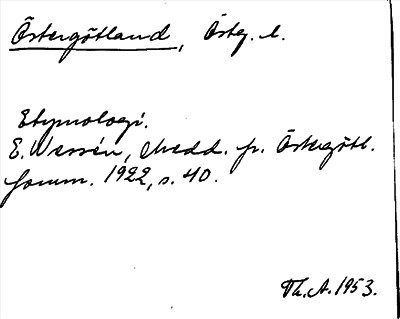 Östergötland, Östg. l.
Etymologi.
E. Wessén, Medd. fr. Östergötl.
fornm. 1922, s. 40.
Th. A. 1953.